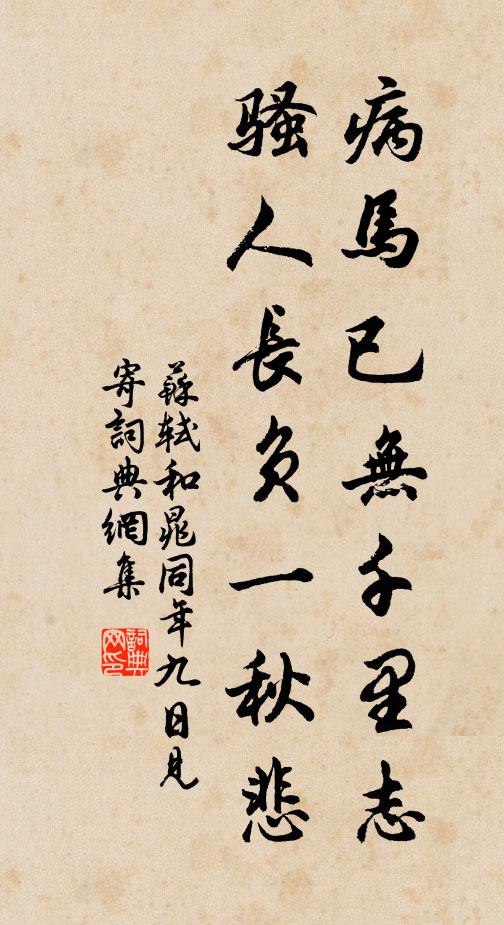 病馬已無千里志
騷人長負一秋悲
蘇軾和晁同年九日見
寄詞典網集
詞典
网印